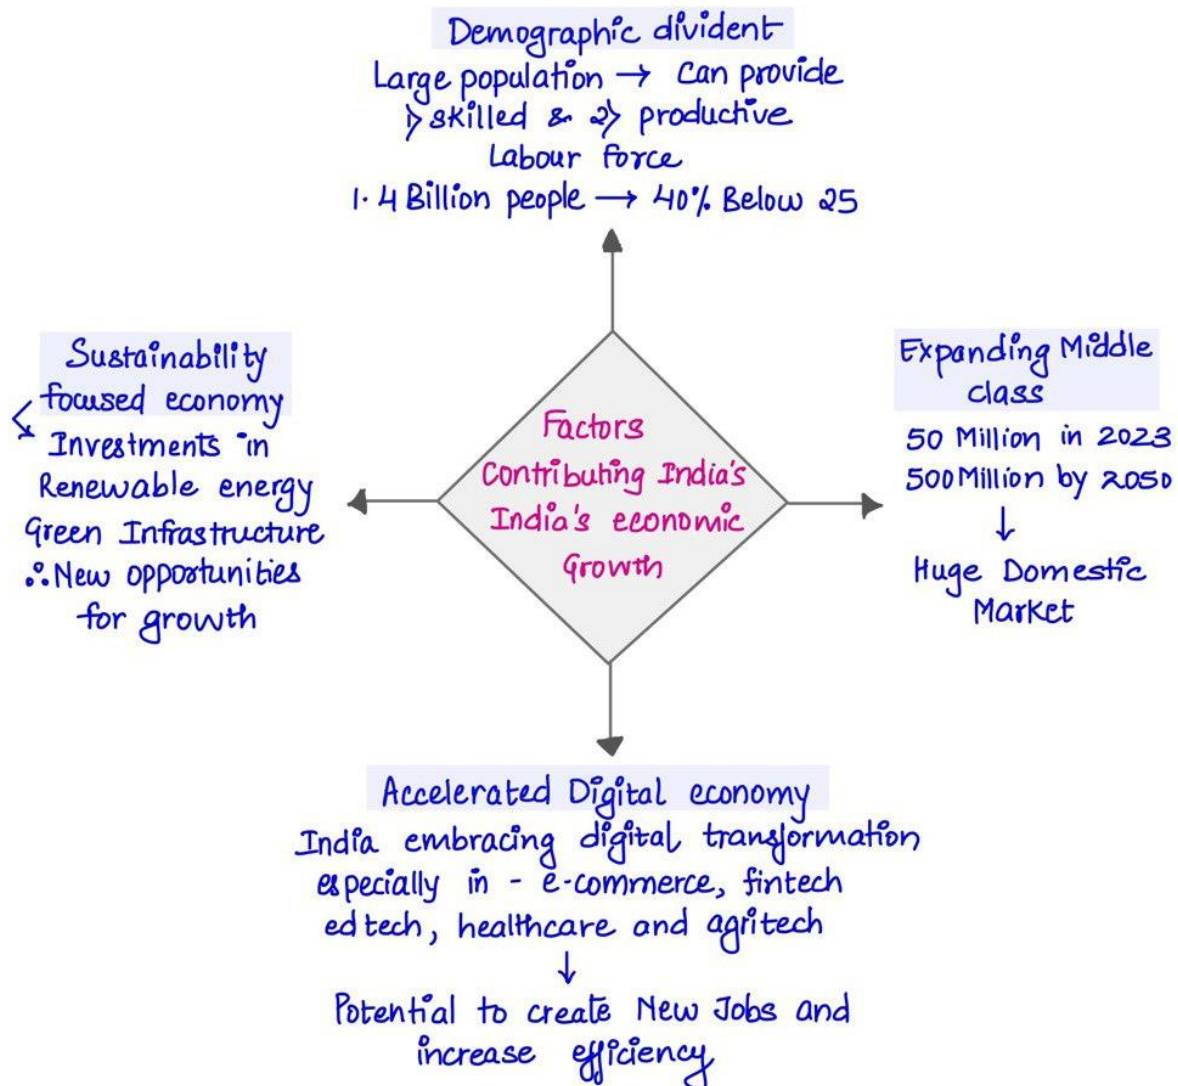 Demographic divident
Large population → Can provide
1> skilled & 2> productive
Labour force
1.4 Billion people → 40% Below 25
Sustainability
focused economy
Investments in
Renewable energy
Green Infrastructure
∴ New opportunities
for growth
Factors
Contributing India's
India's economic
Growth
Expanding Middle
class
50 Million in 2023
500 Million by 2050
↓
Huge Domestic
Market
Accelerated Digital economy
India embracing digital transformation
especially in - e-commerce, fintech
edtech, healthcare and agritech
↓
Potential to create New Jobs and
increase efficiency